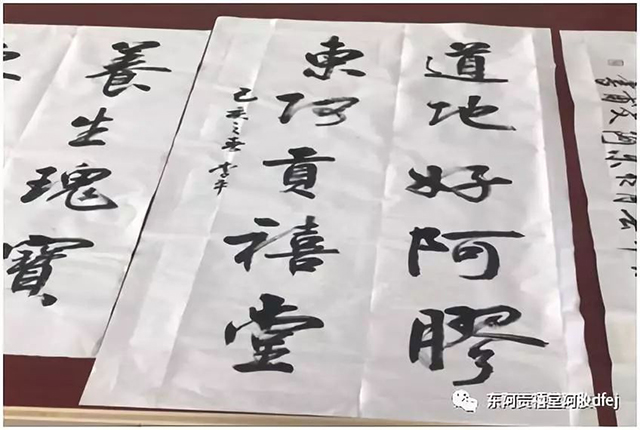 道地好阿膠
東阿貢禧堂
己亥之春
養生瑰寶
东阿贡禧堂阿胶dfej